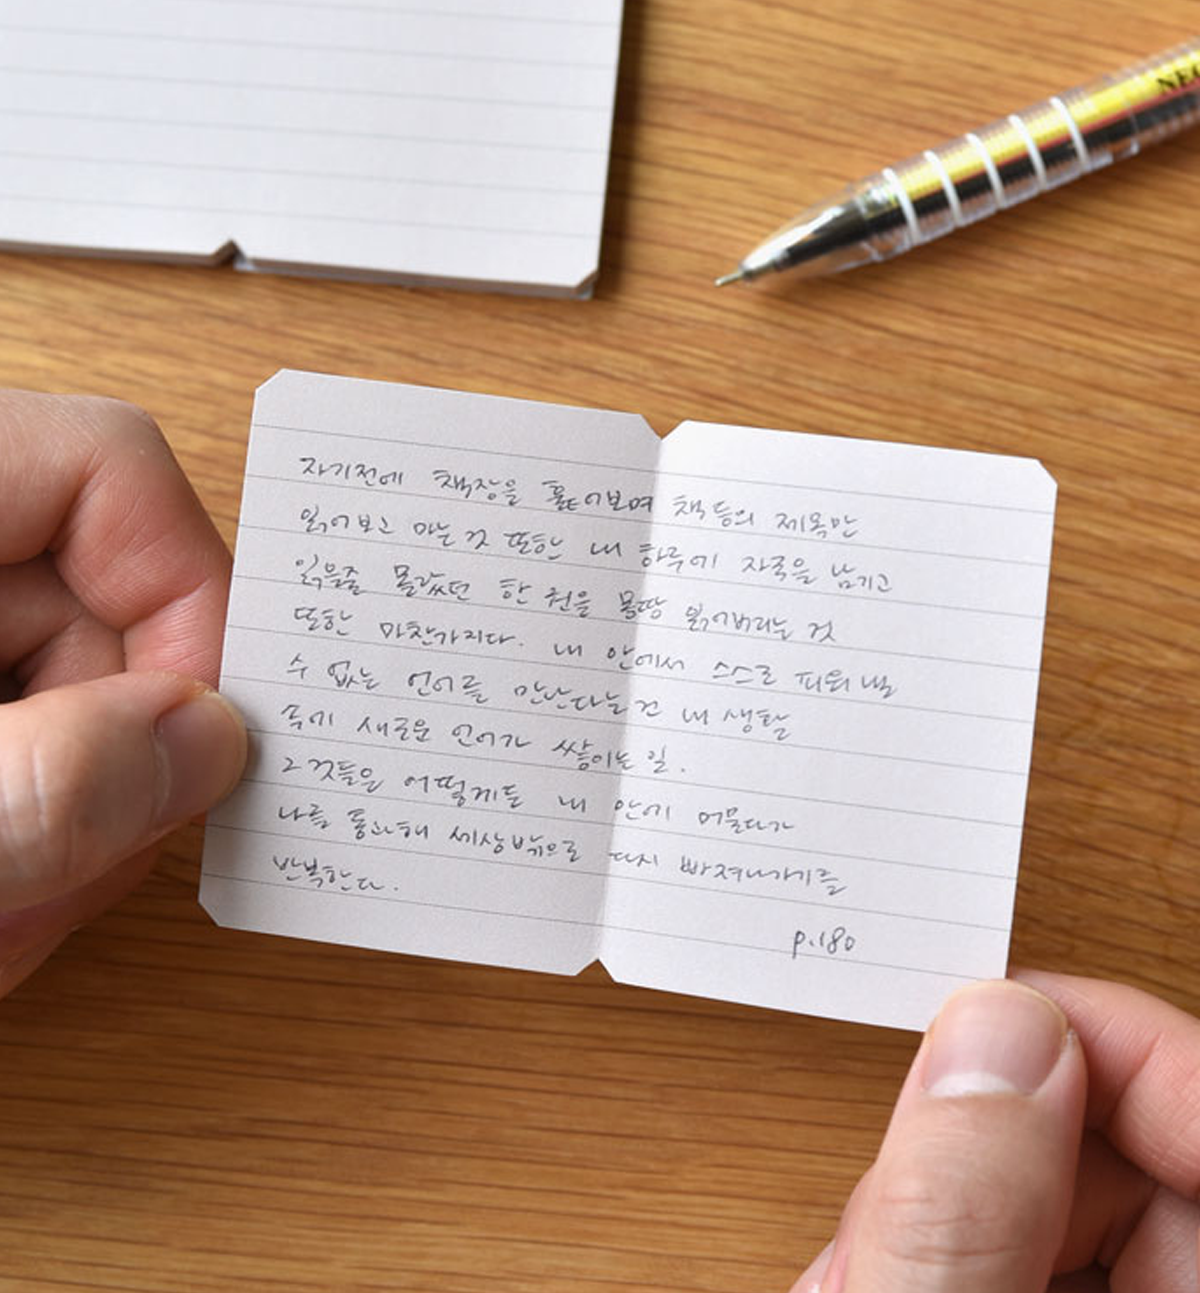 NEO
자기전에 책장을 훑어보며 책등의 제목만
읽어보고 마는 것 또한 내 하루에 자국을 남기고
읽을줄 몰랐던 한 권을 몽땅 읽어버리는 것
또한 마찬가지다. 내 안에서 스스로 피워낼
수 없는 언어를 만난다는건 내 생활
속에 새로운 언어가 쌓이는 일.
그것들은 어떻게든 내 안에 머물다가
나를 통과해 세상밖으로 다시 빠져나가기를
반복한다.
p.180